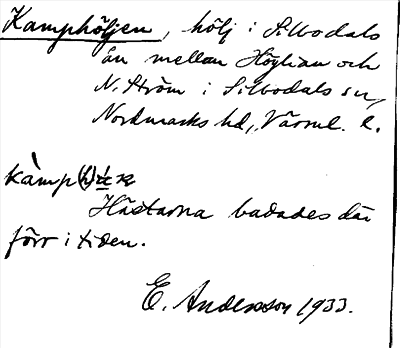 Kamphöljen, hölj i Silbodals
ån mellan Höglian och
N. Ström i Silbodals sn,
Nordmarks hd, Värml. l.
Hästarna badades där
förr i tiden.
E. Andersson 1933.